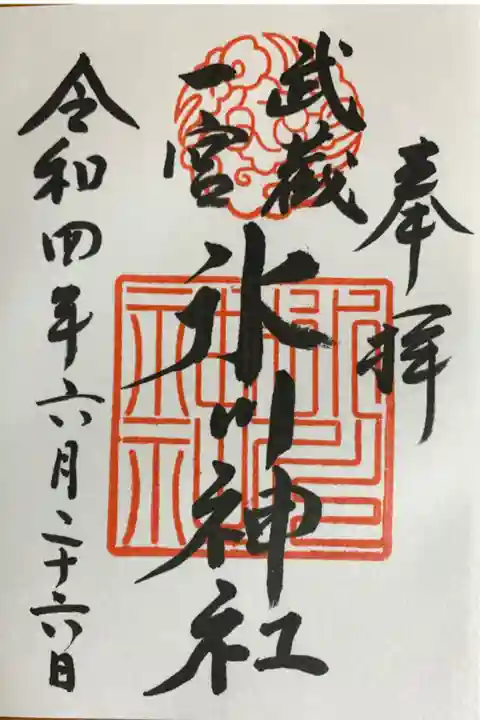 奉拝
武蔵
一宮
氷川神社
令和四年六月二十六日
氷川
神社